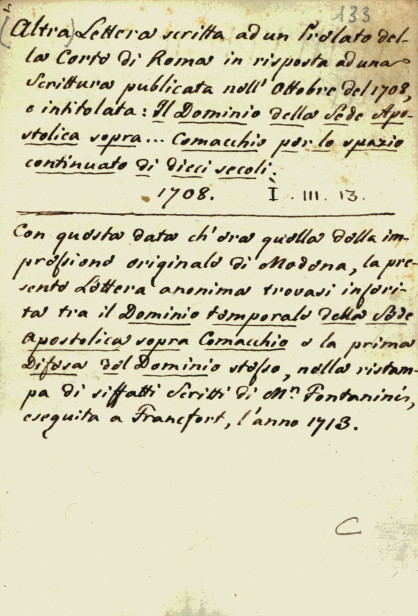 133
(Altra) Lettera scritta ad un Prelato del-
la Corte di Roma in risposta ad una
Scrittura publicata nell' Ottobre del 1708,
e intitolata: Il Dominio della Sede Apo-
stolica sopra... Comacchio per lo spazio
continuato di dieci secoli.
1708. I. III. 13.
Con questa data ch'era quella della im-
pressione originale di Modena, la pre-
sente Lettera anonima trovasi inseri-
ta tra il Dominio temporale della Sede
Apostolica sopra Comacchio e la prima
Difesa del Dominio stesso, nella ristam-
pa di siffatti Scritti di Mn. Fontanini,
eseguita a Francfort, l'anno 1713.
C